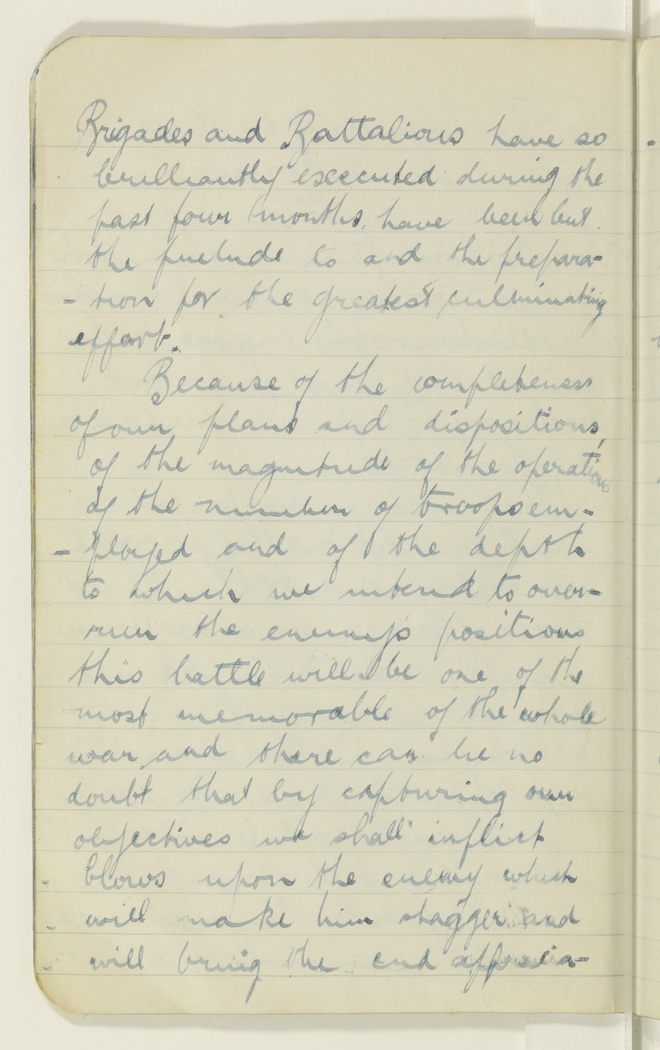 Brigades and Battalions have so
brilliantly executed during the
past four months, have been but
the prelude to and the prepara-
- tion for the greatest culminating
effort.
Because of the completeness
of our plans and dispositions,
of the magnitude of the operations
of the number of troops em-
- ployed and of the depth
to which we intend to over-
run the enemy's positions
this battle will be one of the
most memorable of the whole
war, and there can be no
doubt that by capturing our
objectives we shall inflict
blows upon the enemy which
will make him stagger and
will bring the end apprecia-